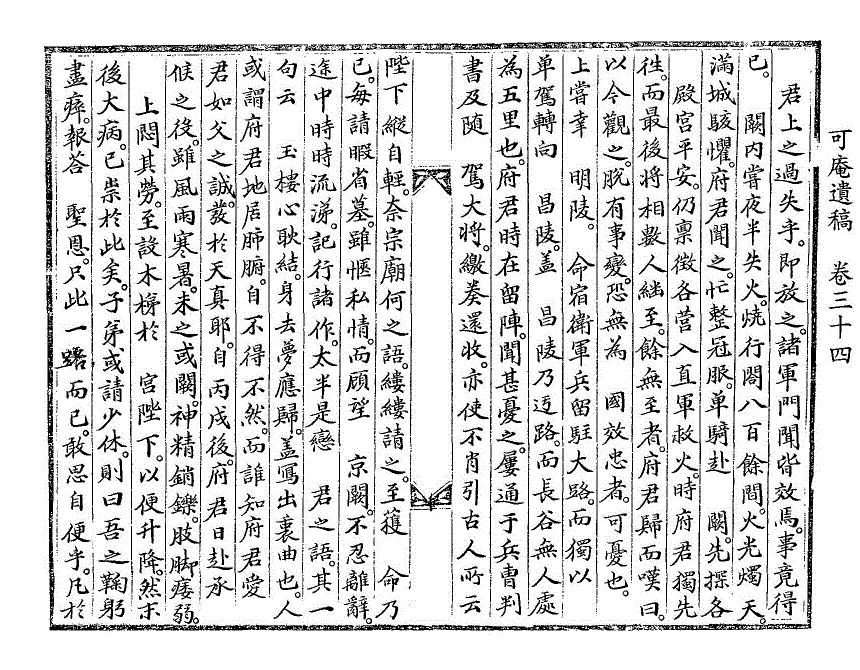 可庵遺稿　卷三十四
君上之過失乎。即放之。諸軍門聞皆效焉。事竟得
已。　闕内嘗夜半失火。燒行閣八百餘間。火光燭天。
滿城駭懼。府君聞之。忙整冠服。單騎赴　闕。先探各
殿宮平安。仍稟徵各营入直軍救火。時府君獨先
徃。而最後將相數人繼至。餘無至者。府君歸而嘆曰。
以今觀之。脫有事變。恐無為　國效忠者。可憂也。
上嘗幸　明陵。　命宿衛軍兵留駐大路。而獨以
单駕轉向　昌陵。盖　昌陵乃迃路。而長谷無人處
為五里也。府君時在留陣。聞甚憂之。屢通于兵曹判
書及随　駕大將。繳奏還收。亦使不肖引古人所云
陛下縱自輕。奈宗廟何之語。縷縷請之。至蒦　命乃
已。每請暇省墓。雖愜私情。而顧望　京闕。不忍離辭。
途中時時流涕。記行諸作。太半是戀　君之語。其一
句云　玉樓心耿結。身去夢應歸。盖寫出衷曲也。人
或謂府君地居肺腑。自不得不然。而誰知府君愛
君如父之誠。發於天真耶。自丙戌後。府君日赴承
候之後。雖風雨寒暑。未之或闕。神精銷鑠。股脚痿弱。
上悶其勞。至設木梯於　宮陛下。以便升降。然末
後大病。已祟於此矣。子弟或請少休。則曰吾之鞠躬
盡瘁。報答　聖恩。只此一路而已。敢思自便乎。凡於